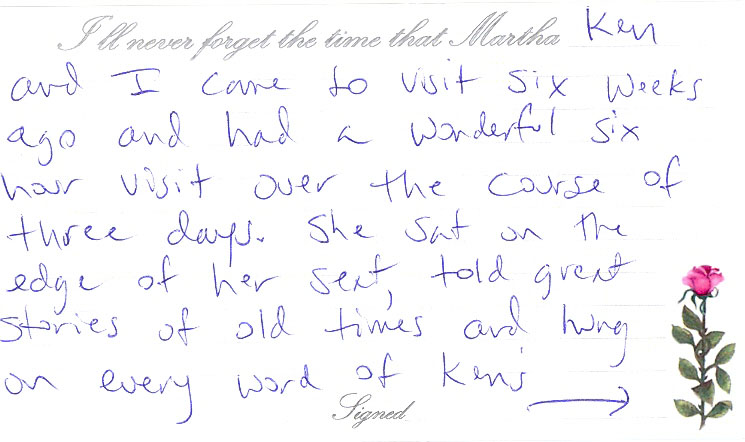 I'll never forget the time that Martha Ken
and I came to visit six weeks
ago and had a wonderful six
hour visit over the course of
three days. She sat on the
edge of her seat, told great
stories of old times and hung
on every word of Ken's
Signed